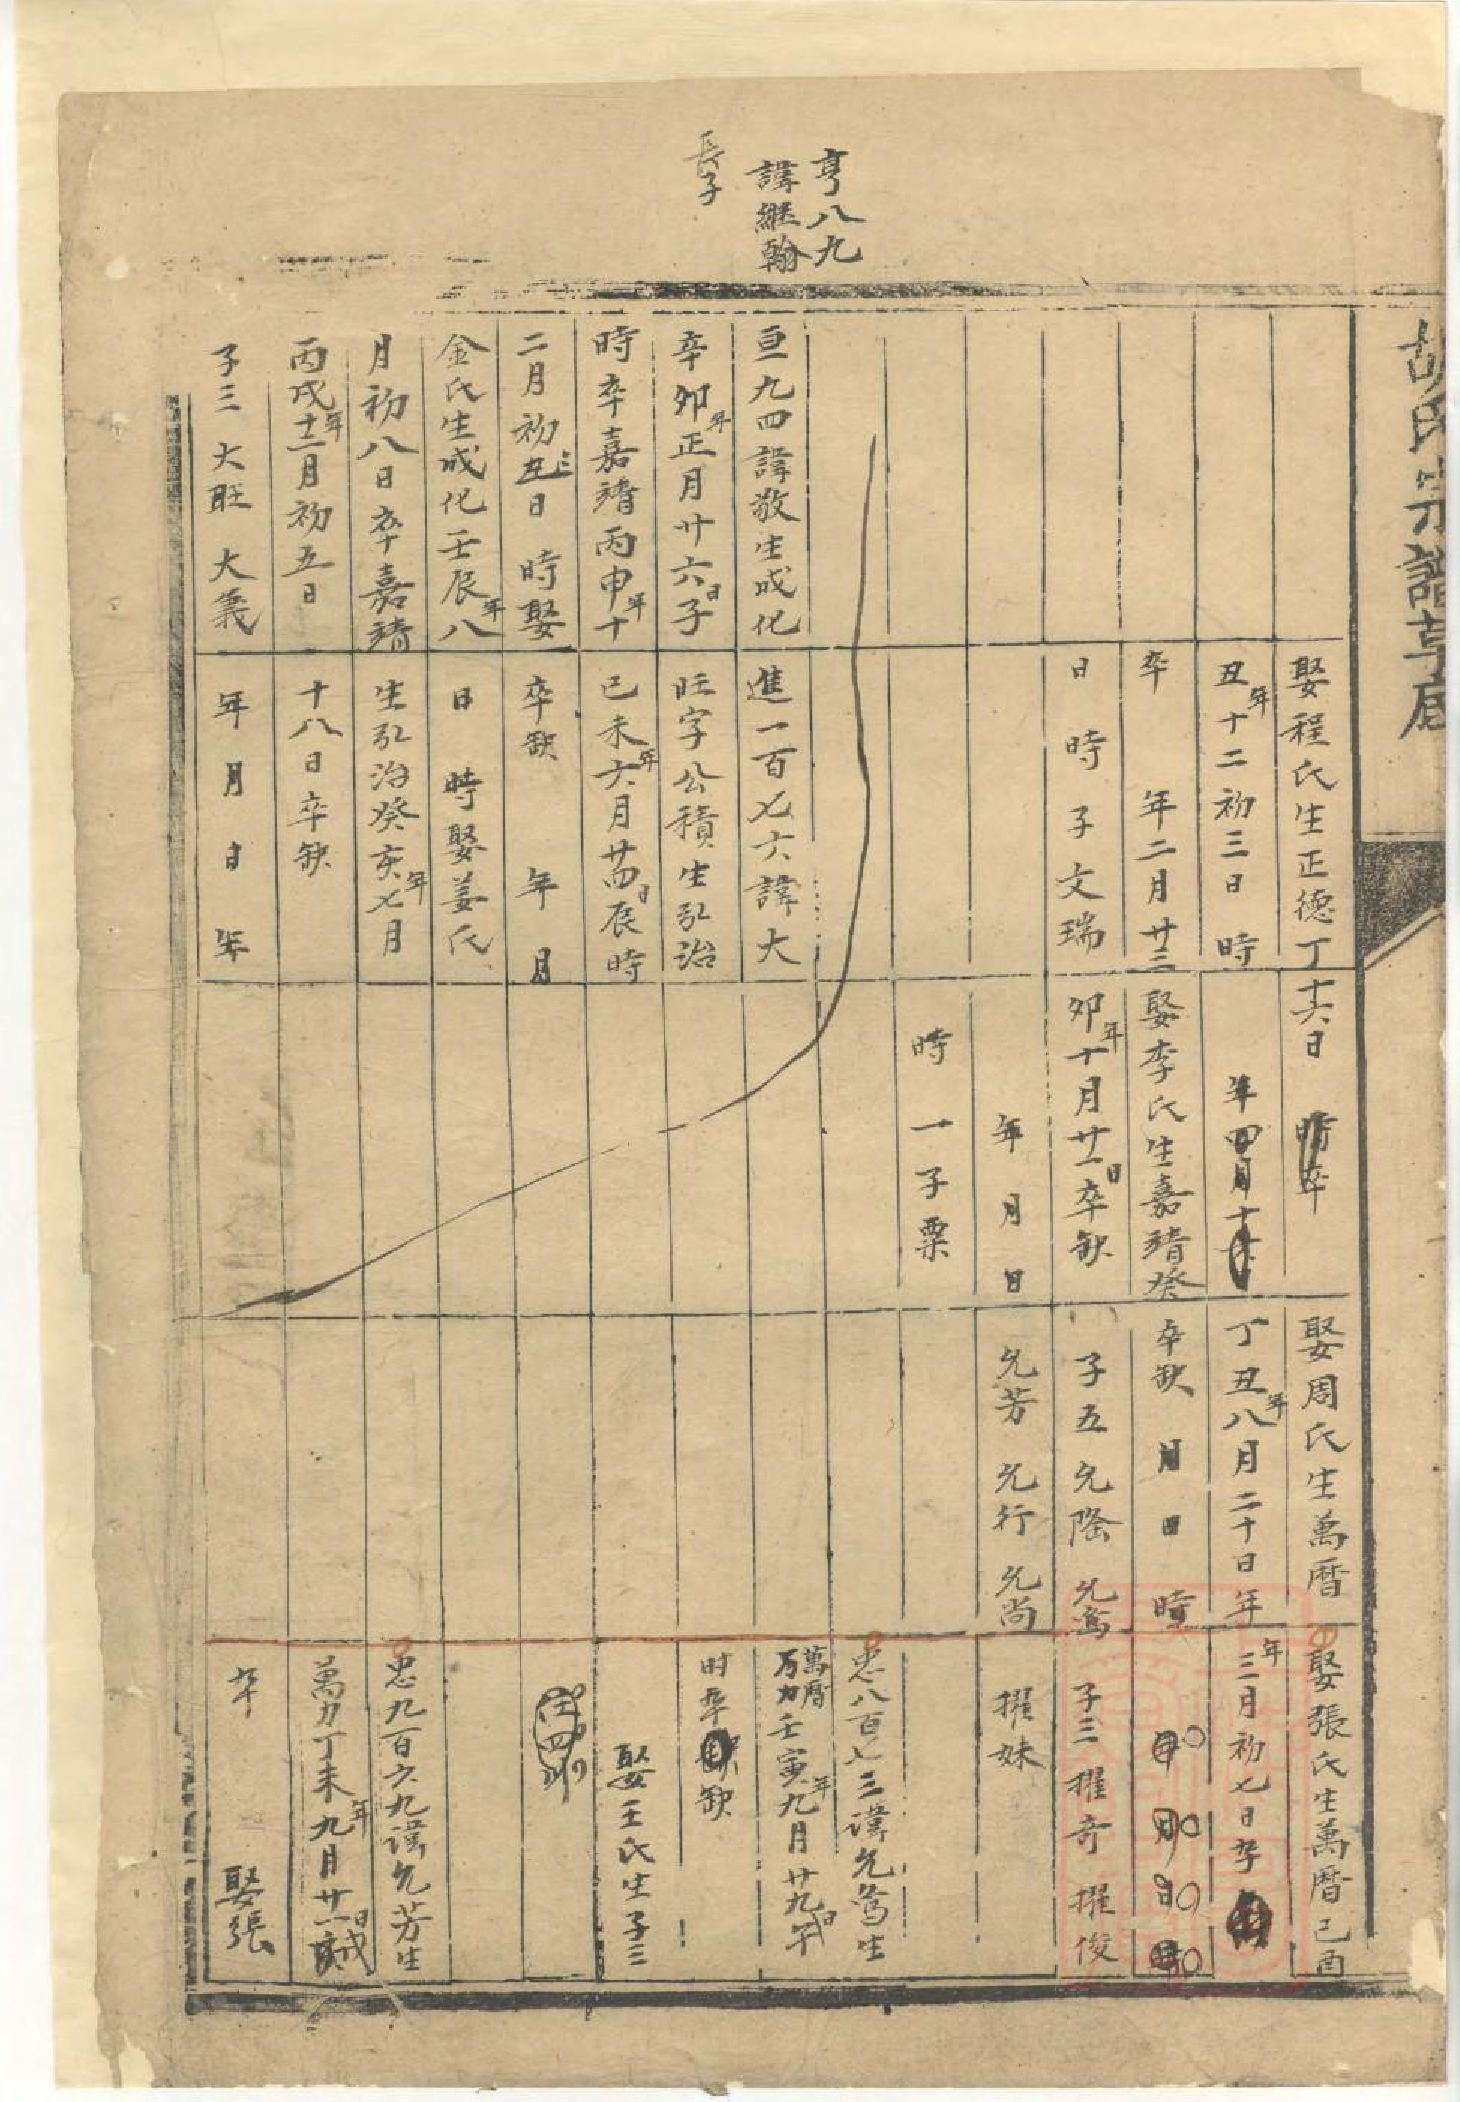 胡氏宗譜草底
亨八九
諱繼翰
長子
亘九四諱敬生成化
辛卯年正月廿六日子
時卒嘉靖丙申年十
二月初三日時娶
金氏生成化壬辰年八
月初八日卒嘉靖
丙戌年十二月初五日
子三大旺大義
娶程氏生正德丁
丑年十二初三日時
卒年二月廿三
日時子文瑞
進一百七六諱大
旺字公積生弘治
己未年六月廿四日辰時
卒缺年月
日時娶姜氏
生弘治癸亥年七月
十八日卒缺
年月日年
十六日時卒
年四月十
娶李氏生嘉靖癸
卯年十月廿一日卒缺
年月日
時一子栗
娶周氏生萬曆
丁丑年八月二十日年
卒缺月日時
子五允隆允鸞
允芳允行允尚
娶張氏生萬曆己酉
年三月初七日卒
年月日時
子三擢奇擢俊
擢妹
忠八百七三諱允鸞生
萬曆壬寅年九月廿九日午
时卒缺
娶王氏生子三
忠九百六九諱允芳生
萬力丁未年九月廿一日戌
年娶張